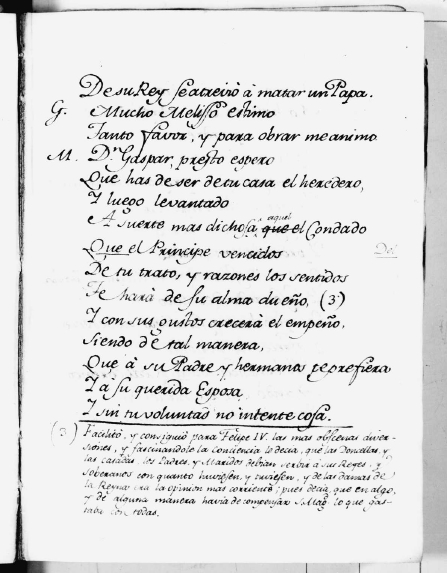 De su Rey se atreviò à matar un Papa.
G. Mucho Melisso estimo
Tanto favor, y para obrar me animo
M. Dn Gaspar, presto espero
Que has de ser de tu casa el heredero,
Y luego levantado
A suerte mas dichosa, que el aquel Condado
Que el Principe vencidos
De tu trato, y razones los sentidos
Te harà de su alma dueño, (3)
Y con sus gustos crecerà el empeño,
Siendo de tal manera,
Que à su Padre y hermanos te prefiera
Y à su querida Esposa
Y sin tu voluntad no intente cosa.
(3) Facilitò, y consiguiò para Felipe IV. las mas obscenas diver-
siones, y fascinandole la Conciencia le decia, que las Doncellas, y
las casadas, los Padres, y Maridos debian servir à sus Reyes, y
soberanos con quanto huviesen, y tuviesen, y de las damas de
la Reyna era la opinion mas corriente; pues decia, que en algo,
y de alguna manera havia de compensar S. Mag. lo que gas-
taba con todas.